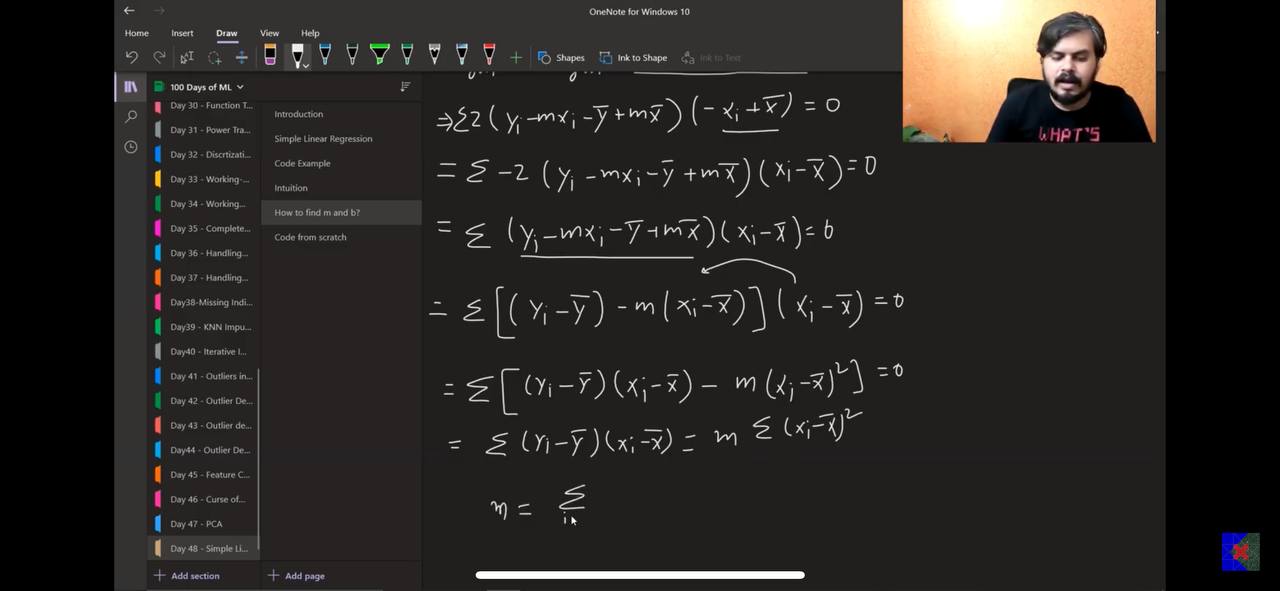 OneNote for Windows 10
Home Insert Draw View Help
Shapes Ink to Shape Ink to Text
100 Days of ML
Day 30 - Function T...
Day 31 - Power Tra...
Day 32 - Discrtizati...
Day 33 - Working-...
Day 34 - Working...
Day 35 - Complete...
Day 36 - Handling...
Day 37 - Handling...
Day38-Missing Indi...
Day39 - KNN Impu...
Day40 - Iterative I...
Day 41 - Outliers in...
Day 42 - Outlier De...
Day 43 - Outlier de...
Day44 - Outlier De...
Day 45 - Feature C...
Day 46 - Curse of...
Day 47 - PCA
Day 48 - Simple Li...
Add section
Introduction
Simple Linear Regression
Code Example
Intuition
How to find m and b?
Code from scratch
Add page
⇒ Σ2(yᵢ-mxᵢ-y̅+mx̅)(-xᵢ+x̅)=0
= Σ -2 (yᵢ-mxᵢ-y̅+mx̅)(xᵢ-x̅)=0
= Σ (yᵢ-mxᵢ-y̅+mx̅)(xᵢ-x̅)=0
= Σ[(yᵢ-y̅)-m(xᵢ-x̅)](xᵢ-x̅)=0
= Σ[(yᵢ-y̅)(xᵢ-x̅)-m(xᵢ-x̅)²]=0
= Σ(yᵢ-y̅)(xᵢ-x̅)=m Σ(xᵢ-x̅)²
m = Σ
i
WHAT'S